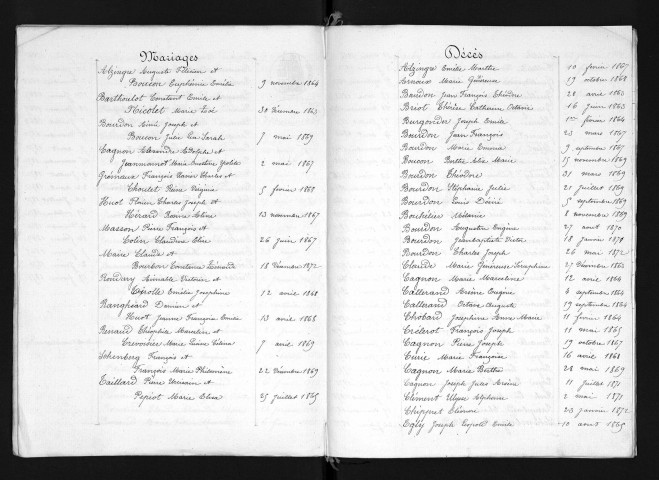 Mariages
Alzingre Auguste Félicien et
Boucon Euphémie Emélie 9 novembre 1864
Barthoulot Constant Emile et
Nicolet Marie Zoé 30 Décembre 1863
Bourdon Aimé Joseph et
Boucon Julie Sarah 7 mai 1869
Cagnon Alexandre Adolphe et
Jeannainot Marie 2 mai 1867
Grémaux François Xavier Charles et
Choulet Reine Virginie 5 février 1868
Huot Florien Charles Joseph et
Hérard Céline 13 novembre 1867
Masson Pierre François et
Colin Claudine Elise 26 juin 1867
Maire Claude et
Bourbon Constance 18 Décembre 1872
Aimable Victorien et
Emélie Joséphine 12 avril 1868
Damien et
Huot Jeanne Françoise 13 avril 1868
Perraud Théophile Marcelin et
Marie 7 avril 1869
Schenberg François et
François Marie Philomène 22 Décembre 1869
Taillard Pierre et
Pepiot Marie Elisa 25 juillet 1865
Décés
Alzingre Emélie Marthe 10 février 1867
Arnoux Marie 19 octobre 1868
Baudon Jean François Théodore 20 avril 1863
Briot Thérèse Catherine 16 juin 1863
Burgondet Joseph Emile 1er février 1864
Bourdon Jean François 23 mars 1867
Bourdon Marie Emma 9 septembre 1867
Boucon Berthe Marie 15 novembre 1869
Bourdon Théodore 31 mars 1869
Bourdon Stéphanie Julie 21 juillet 1869
Bourdon Louis Désiré 5 septembre 1869
Bouhélier Mélanie 8 novembre 1869
Bourdon Augustin Eugène 27 août 1870
Bourdon Jean baptiste Victor 18 janvier 1871
Bourdon Charles Joseph 26 mai 1872
Claude Marie Séraphine 27 Décembre 1862
Cagnon Marie Marceline 12 avril 1864
Cattenand Arsène Eugène 4 septembre 1864
Cattenand Octave Auguste 29 septembre 1864
Chobard Joséphine Marie 11 février 1864
François Joseph 11 mai 1865
Cagnon Pierre Joseph 19 octobre 1867
Curie Marie Françoise 16 avril 1868
Cagnon Marie Berthe 28 mai 1869
Cagnon Joseph Jules Arsène 11 juillet 1871
Clément Ulysse Alphonse 2 mai 1871
Chippret Eléonor 23 janvier 1872
Egly Joseph Léopold Emile 10 août 1865